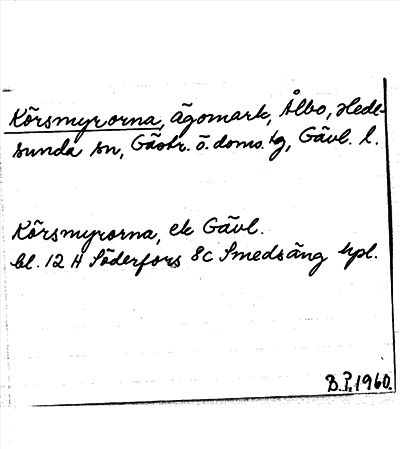 Körsmyrorna, ägomark, Ålbo, Hede-
sunda sn, Gästr. ö. doms. tg, Gävl. l.
Körsmyrorna, ek Gävl.
bl. 12 H Söderfors 8c Smedsäng hpl.
B.P. 1960.